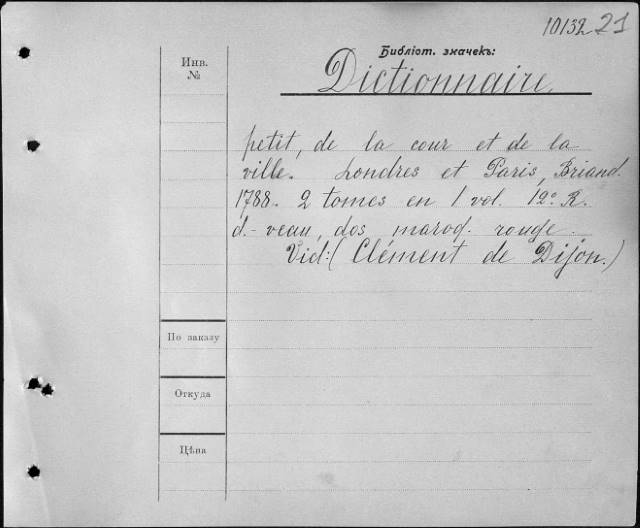 10132 21
Библіот. значекъ:
Инв.
№
Dictionnaire
petit, de la cour et de la
ville. Londres et Paris, Briand.
1788. 2 tomes en 1 vol. 12º R.
d.-veau, dos maroq. rouge.
Vid: (Clément de Dijon.)
По заказу
Откуда
Цѣна